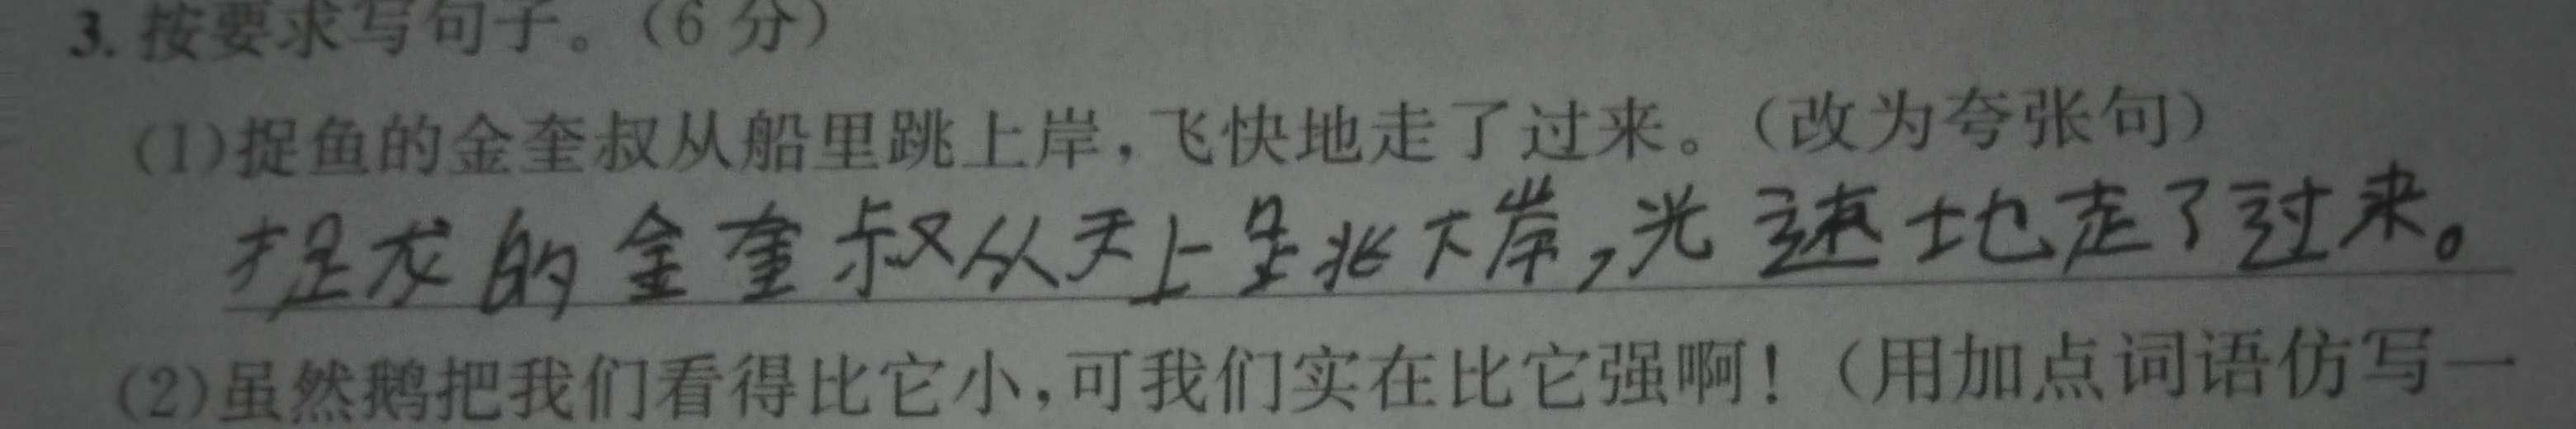 3. 按要求写句子。（6 分）
(1)捉鱼的金奎叔从船里跳上岸，飞快地走了过来。（改为夸张句）
捉龙的金奎叔从天上跳下岸，光速地走了过来。
(2)虽然鹅把我们看得比它小，可我们实在比它强啊！（用加点词语仿写一